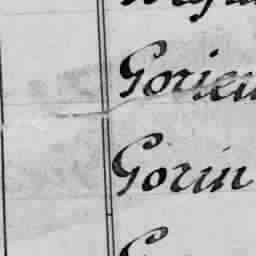 Gorieu
Gorin